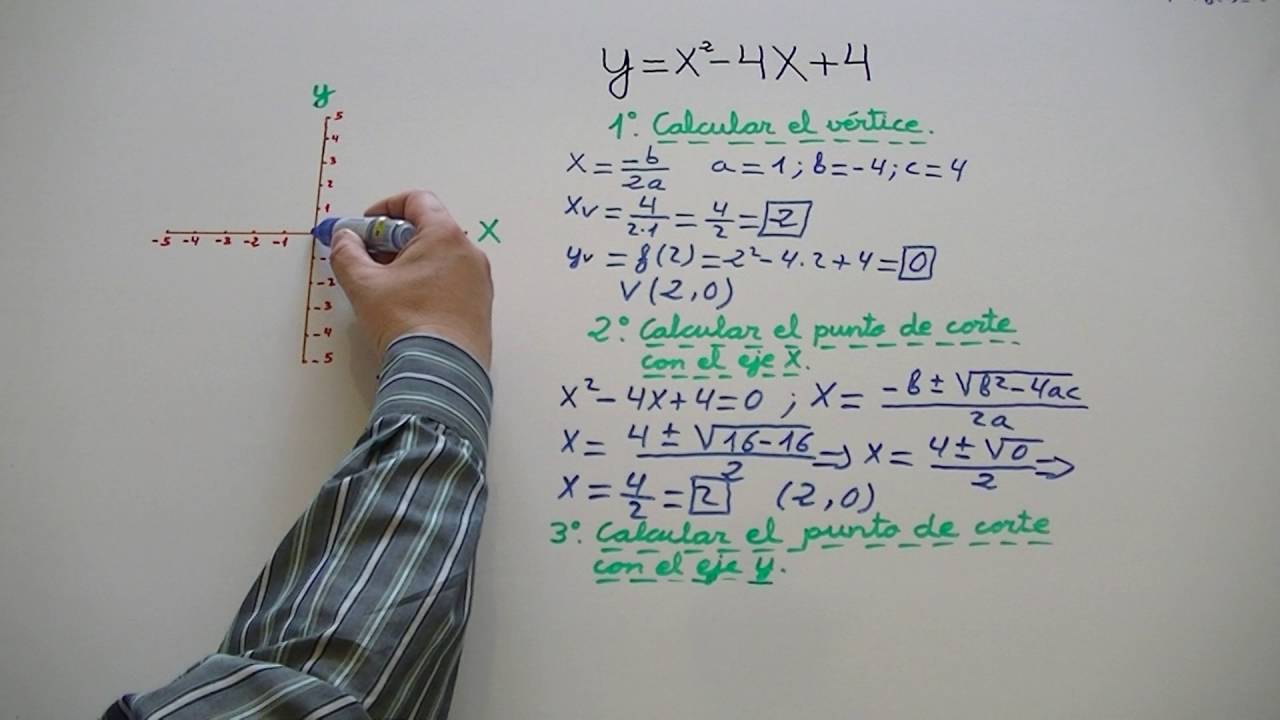 y = x² - 4x + 4
1º. Calcular el vértice.
x = -b/2a   a = 1 ; b = -4 ; c = 4
xv = 4/2·1 = 4/2 = 2
yv = f(2) = 2² - 4·2 + 4 = 0
V (2,0)
2º Calcular el punto de corte
con el eje x.
x² - 4x + 4 = 0 ; x = -b ± √b² - 4ac / 2a
x = 4 ± √16-16 / 2 ⇒ x = 4 ± √0 / 2 ⇒
x = 4/2 = 2   (2,0)
3º. Calcular el punto de corte
con el eje y.
y
5
4
3
2
1
-5 -4 -3 -2 -1 x
-2
-3
-4
-5